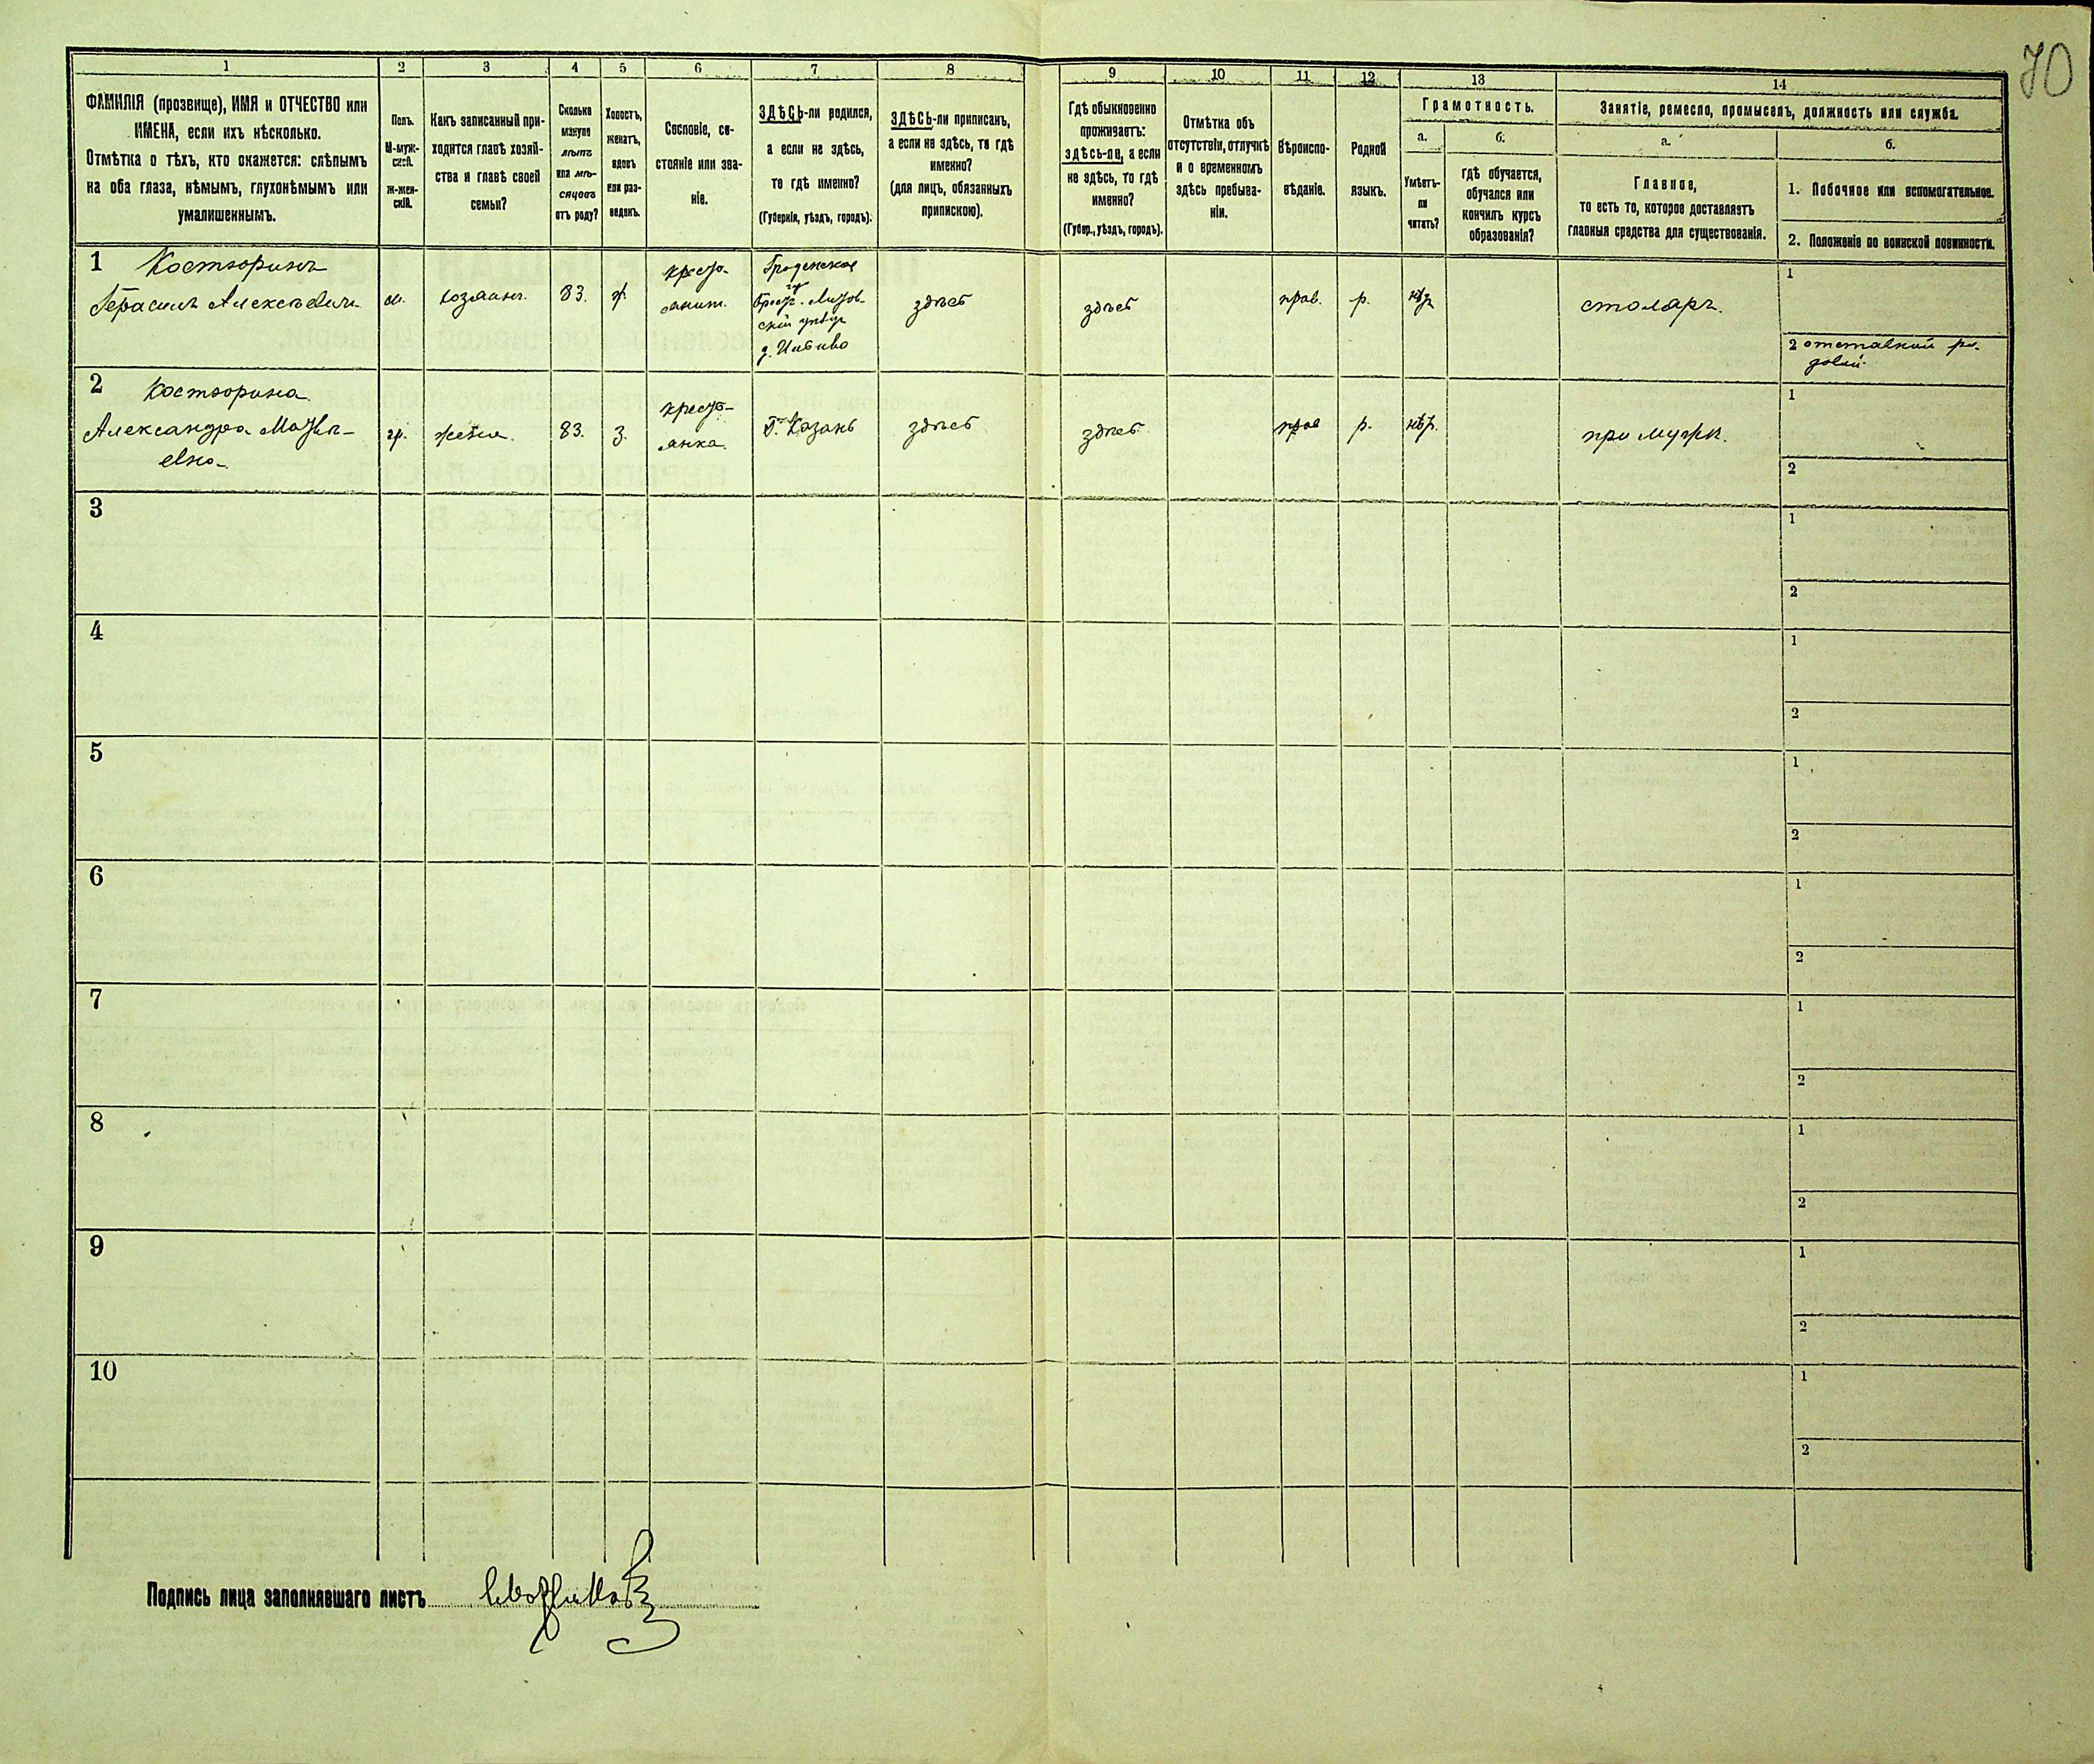 70
1 2 3 4 5 6 7 8 9 10 11 12 13 14
ФАМИЛІЯ (прозвище), ИМЯ и ОТЧЕСТВО или
ИМЕНА, если ихъ нѣсколько.
Отмѣтка о тѣхъ, кто окажется: слѣпымъ
на оба глаза, нѣмымъ, глухонѣмымъ или
умалишеннымъ.
Полъ.
М-муж-
ской.
Ж-жен-
скій.
Какъ записанный при-
ходится главѣ хозяй-
ства и главѣ своей
семьи?
Сколько
минуло
лѣтъ
или мѣ-
сяцевъ
отъ роду?
Холостъ,
женатъ,
вдовъ
или раз-
веденъ.
Сословіе, со-
стояніе или зва-
ніе.
ЗДѢСЬ-ли родился,
а если не здѣсь,
то гдѣ именно?
(Губернія, уѣздъ, городъ).
ЗДѢСЬ-ли приписанъ,
а если не здѣсь, то гдѣ
именно?
(для лицъ, обязанныхъ
припискою).
Гдѣ обыкновенно
проживаетъ:
здѣсь-ли, а если
не здѣсь, то гдѣ
именно?
(Губер., уѣздъ, городъ).
Отмѣтка объ
отсутствіи, отлучкѣ
и о временномъ
здѣсь пребыва-
ніи.
Вѣроиспо-
вѣданіе.
Родной
языкъ.
Грамотность.
а.
Умѣетъ-
ли
читать?
б.
гдѣ обучается,
обучался или
кончилъ курсъ
образованія?
Занятіе, ремесло, промыселъ, должность или служба.
а.
Главное,
то есть то, которое доставляетъ
главныя средства для существованія.
б.
1. Побочное или вспомогательное.
2. Положеніе по воинской повинности.
1 Костюринъ
Герасимъ Алексѣевичъ
м.
хозяинъ.
83.
ж.
кресть-
янин.
Гродненская
гу
Брест-Литов-
скій уѣзд
д.
здѣсь
здѣсь
прав.
р.
нѣт
столяръ.
1
2 отставной ря-
довой.
2 Костюрина
Александра Матвѣ-
евна
ж.
жена.
83.
з.
кресть-
янка
Г. Казань
здѣсь
здѣсь
прав
р.
нѣт.
при мужѣ.
1
2
3
1
2
4
1
2
5
1
2
6
1
2
7
1
2
8
1
2
9
1
2
10
1
2
Подпись лица заполнявшаго листъ